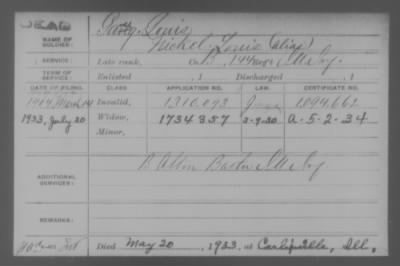 DEAD
NAME OF SOLDIER: Louis
Nickel, Louis (alias)
SERVICE: Late rank, Co. B, 144 Regt. Ill. Inf.
TERM OF SERVICE: Enlisted , 1 Discharged , 1
DATE OF FILING. CLASS. APPLICATION NO. LAW. CERTIFICATE NO.
1904 March 14 Invalid, 1310,093 1,094,662
1933, July 20 Widow, 1734357 2-9-30 A-5-2-34
Minor,
ADDITIONAL SERVICES: B. Alton Ill. Inf
REMARKS:
Died May 20, 1933, at Carlinville, Ill.